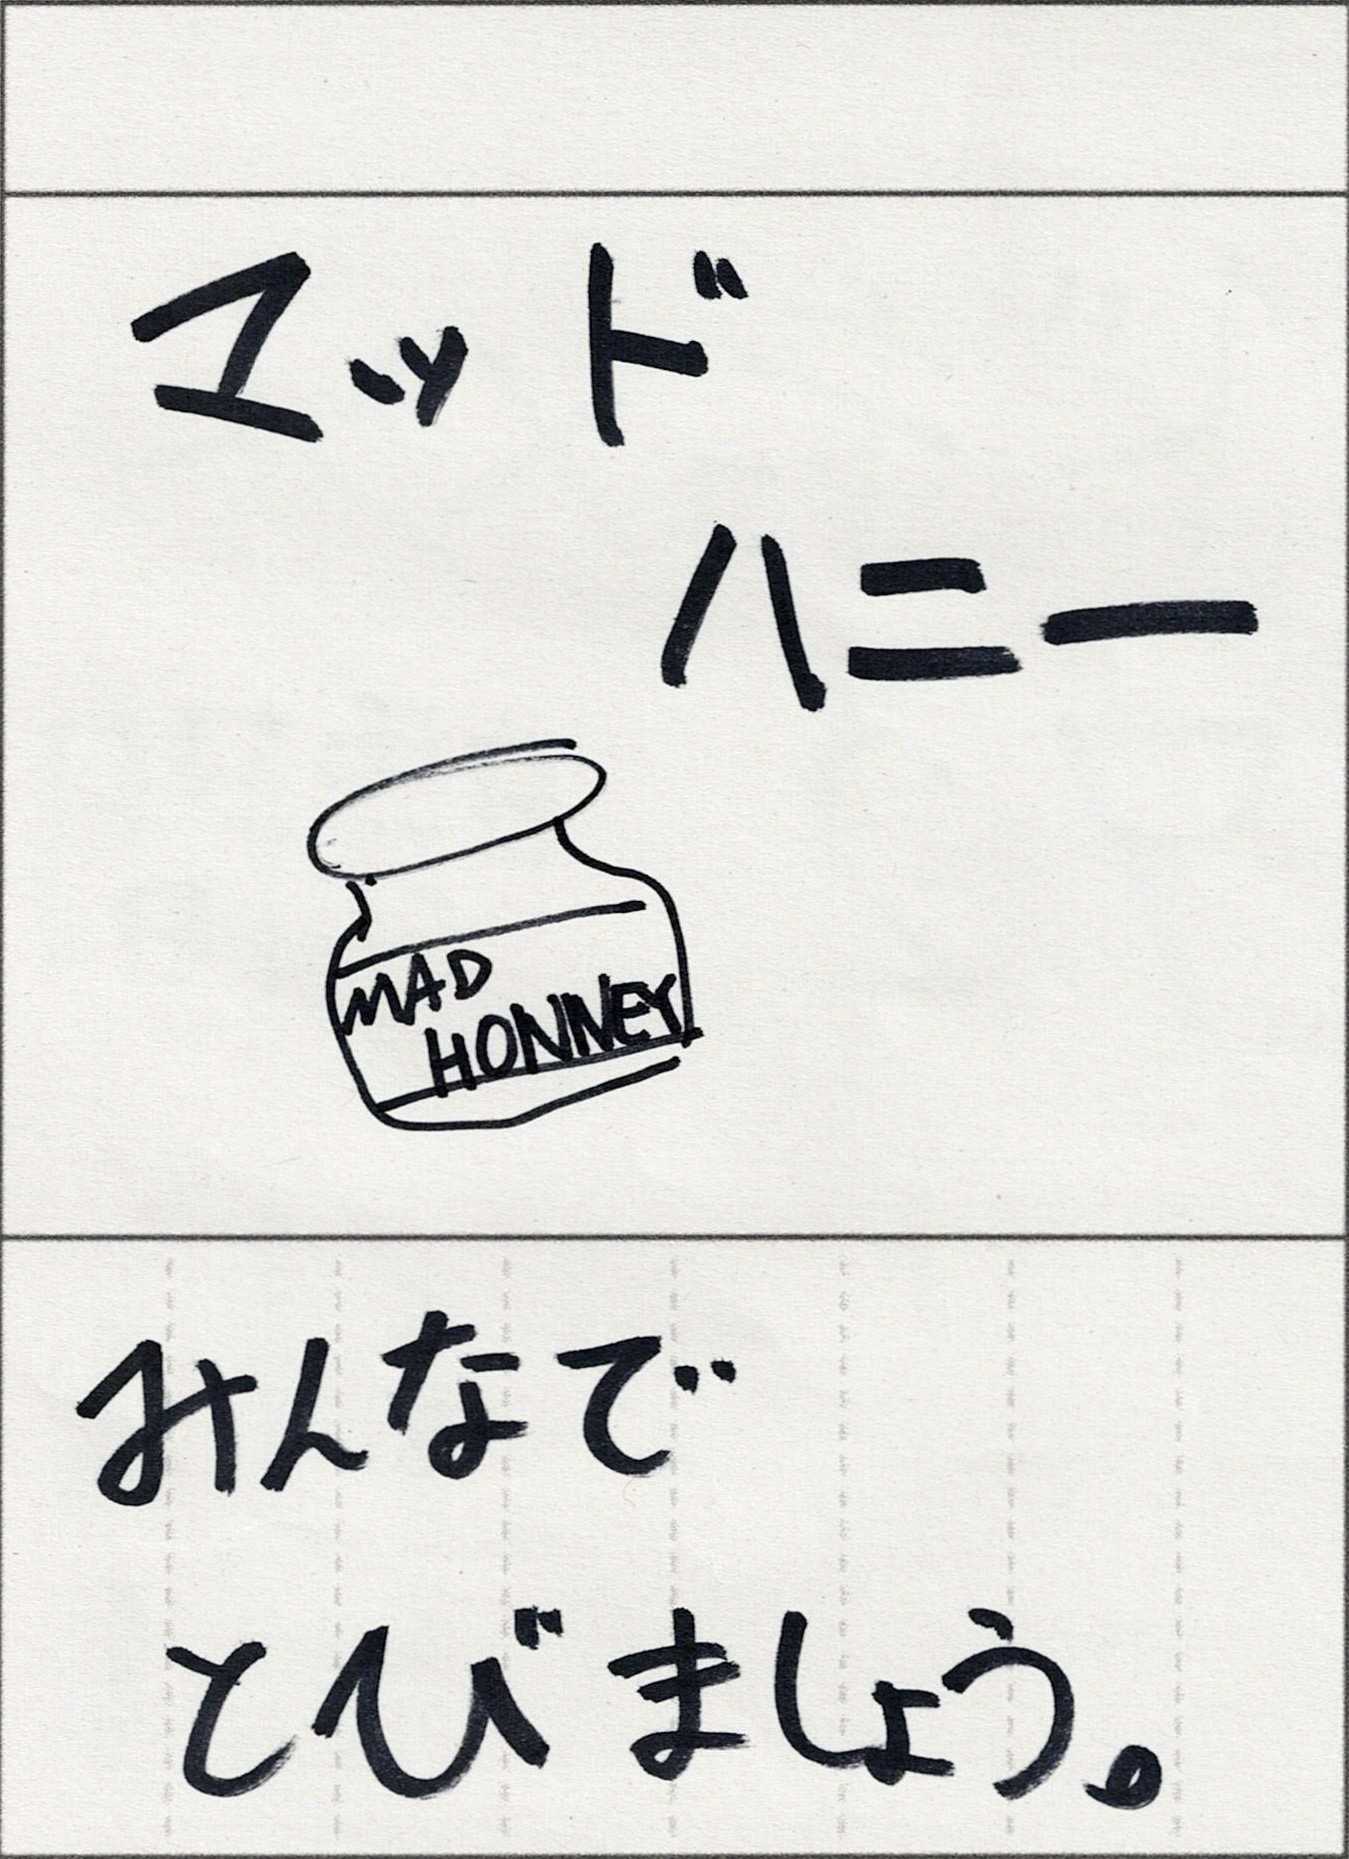 マッド
ハニー
MAD
HONNEY
みんなで
とびましょう。